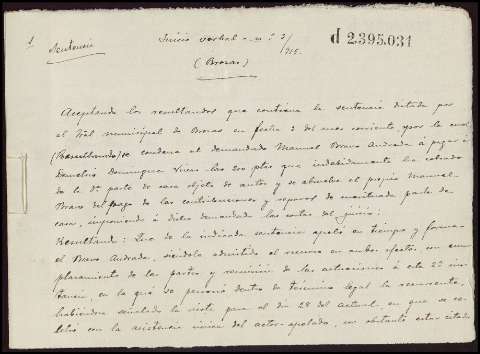 Sentencia
Juicio verbal - n.º 3/915.
d 2.395.031
(Brozas)
Aceptando los resultandos que contiene la sentencia dictada por
el Tral municipal de Brozas en fecha 2 del mes corriente, por la cual
(Resultando) se condena al demandado Manuel Bravo Andrada á pagar á
Demetrio Dominguez Vivas las 200 ptas que indebidamente ha cobrado
de la 5ª parte de casa objeto de autos y se absuelve al propio Manuel
Bravo del pago de las contribuciones y reparos de mentada parte de
casa, imponiendo á dicho demandado las costas del juicio:
Resultando: Que de la indicada sentencia apeló en tiempo y forma
el Bravo Andrada, siéndole admitido el recurso en ambos efectos con em-
plazamiento de las partes y remisión de las actuaciones á esta 2ª ins-
tancia, en la que se personó dentro de término legal la recurrente,
habiéndose señalado la vista para el dia 28 del actual, en que se ce-
lebró con la asistencia única del actor-apelado, no obstante estar citado